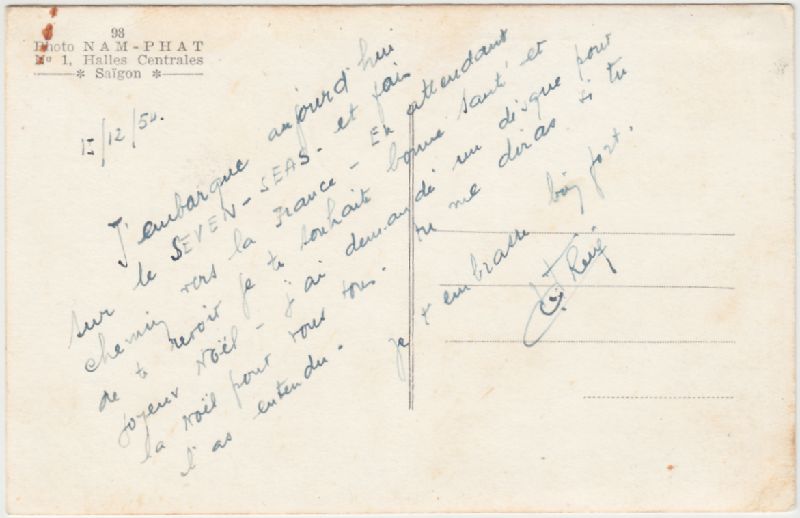 98
Photo NAM-PHAT
Nº 1, Halles Centrales
* Saïgon *
/12/50.
J'embarque aujourd'hui
sur le SEVEN-SEAS. et fais
chemin vers la France - En attendant
de te revoir je te souhaite bonne santé et
joyeux Noël - j'ai demandé un disque pour
la Noël pour vous tous. tu me diras si tu
l'as entendu.
Je t'embrasse bien fort.
René